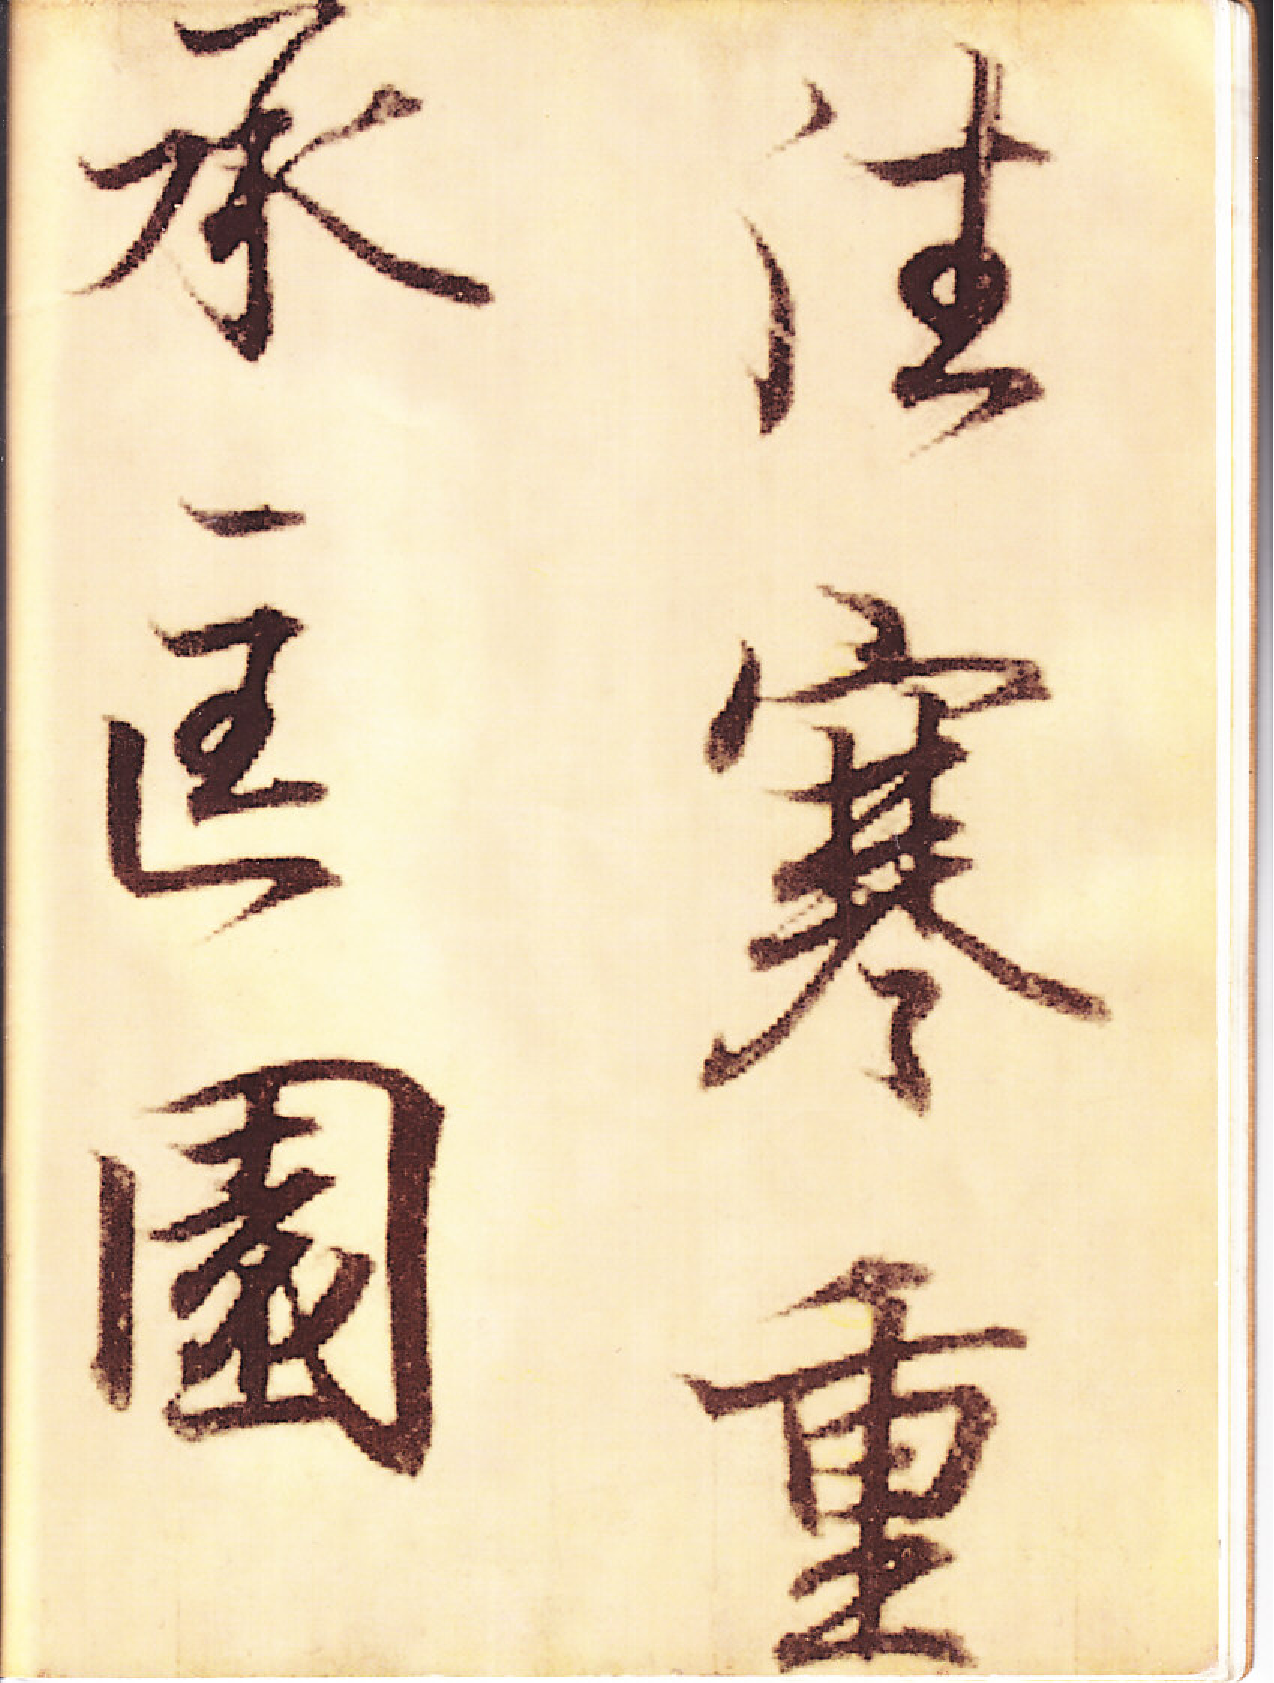 寒重
承匡園